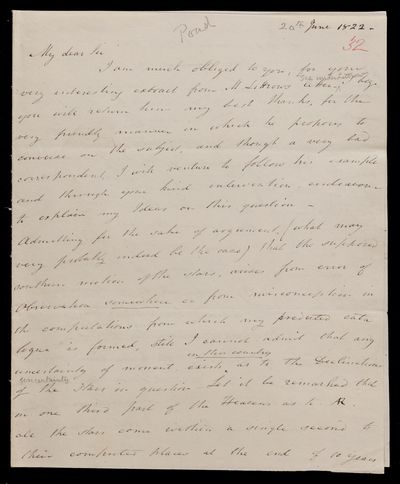 Pond
20th June 1822 -
32
My dear Sir
I am much obliged to you, for your
very interesting extract from M. Littrow's letter, I beg
you will return him my best thanks, for the
very friendly manner in which he proposes to
converse on the subject, and though a very bad
correspondent, I will venture to follow his example
and through your kind intervention, endeavour
to explain my Ideas on this question -
Admitting for the sake of argument, (what may
very probably indeed be the case) that the supposed
southern motion of the stars, arises from error of
Observation somewhere or from misconception in
the computations from which my predicted cata
logue is formed, still I cannot admit that any
in this country
uncertainty of moment exists, as to the Declinations
uncertainty
of the Stars in question. Let it be remarked that
in one third part of the Heavens as to AR.
all the stars come within a single second to
their computed places at the end of 10 years